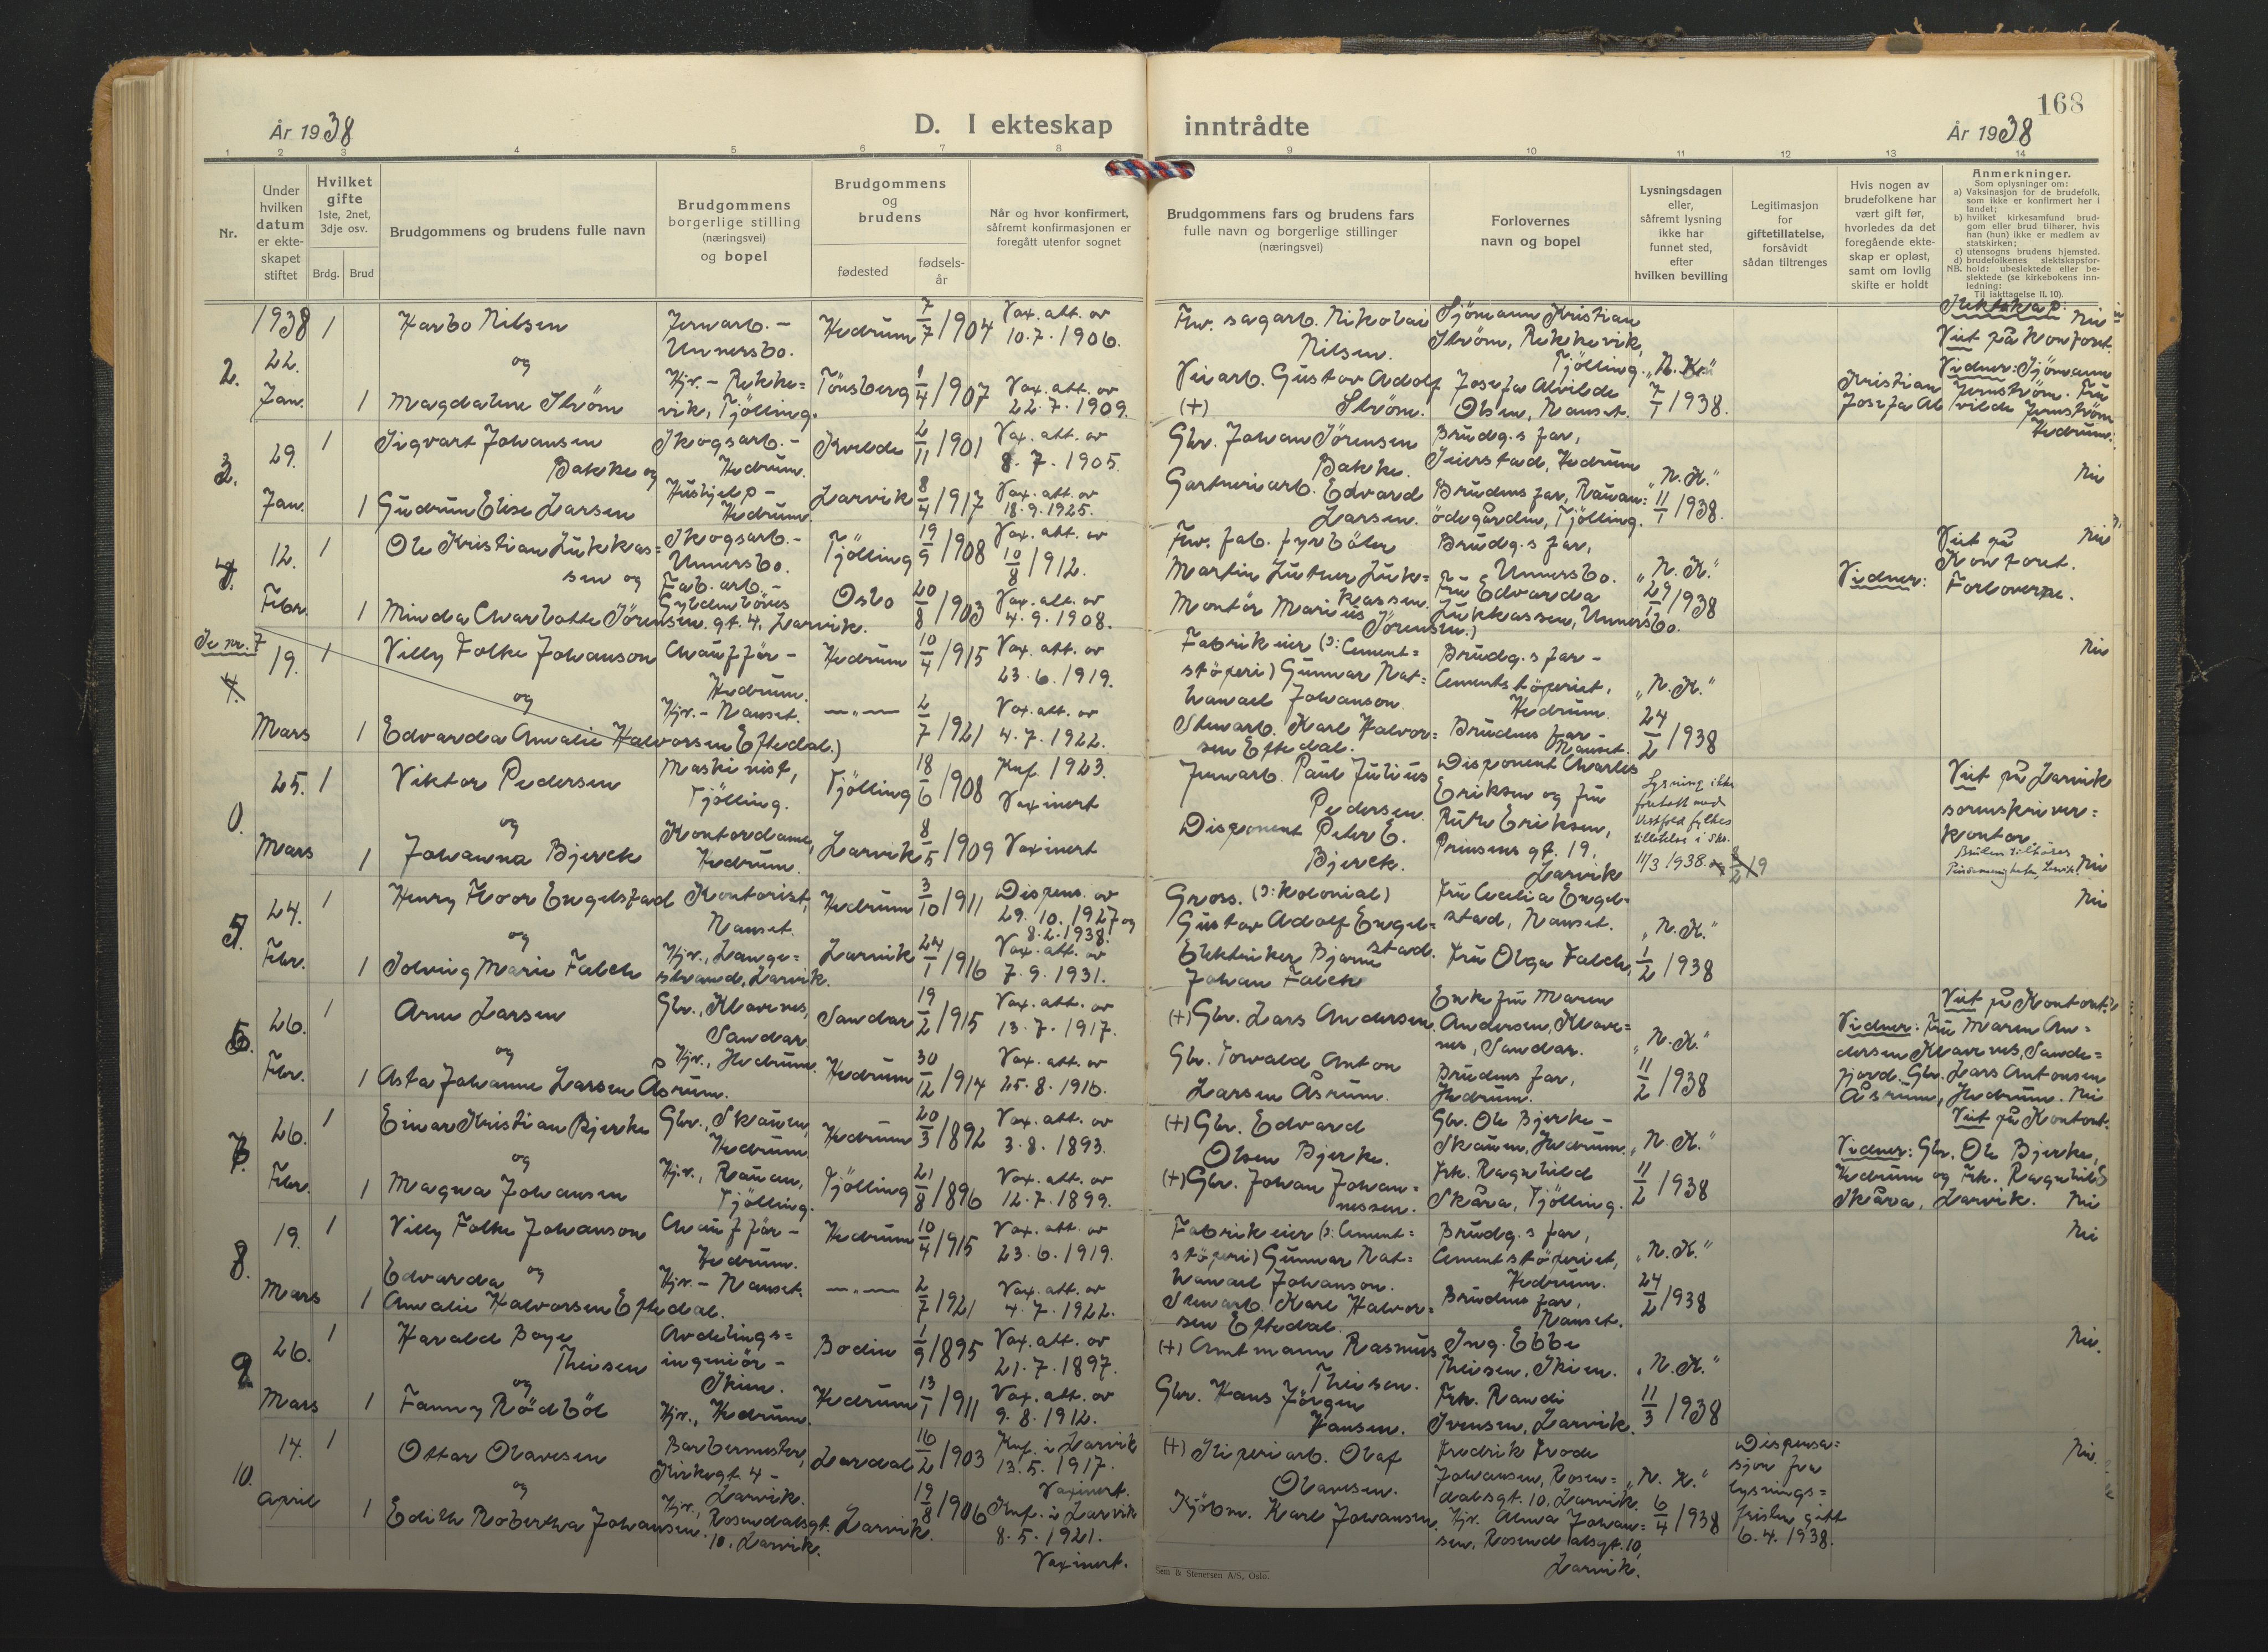 168
År 1938
D. I ekteskap inntrådte
År 1938
1 2 3 4 5 6 7 8 9 10 11 12 13 14
Nr.
Under hvilken datum er ekteskapet stiftet
Hvilket gifte 1ste, 2net, 3dje osv.
Brdg. Brud
Brudgommens og brudens fulle navn
Brudgommens borgerlige stilling (næringsvei) og bopel
Brudgommens og brudens
fødested
fødselsår
Når og hvor konfirmert, såfremt konfirmasjonen er foregått utenfor sognet
Brudgommens fars og brudens fars fulle navn og borgerlige stillinger (næringsvei)
Forlovernes navn og bopel
Lysningsdagen eller, såfremt lysning ikke har funnet sted, efter hvilken bevilling
Legitimasjon for giftetillatelse, forsåvidt sådan tiltrenges
Hvis nogen av brudefolkene har vært gift før, hvorledes da det foregående ekteskap er opløst, samt om lovlig skifte er holdt
Anmerkninger.
Som oplysninger om:
a) Vaksinasjon for de brudefolk, som ikke er konfirmert her i landet;
b) hvilket kirkesamfund brudgom eller brud tilhører, hvis han (hun) ikke er medlem av statskirken;
c) utensogns brudens hjemsted.
d) brudefolkenes slektskapsforhold: ubeslektede eller beslektede (se kirkebokens innledning:
NB. Til iakttagelse II, 10).
2.
1938
22.
Jan.
1
Harbo Nilsen
og
1 Magdalene Strøm
Jernarb. -
Unnersbo.
Hjv. - Rekke=
vik, Tjölling.
Hedrum 7/7 1904
Tönsberg 1/4 1907
Vax. att. av
10.7.1906.
Vax. att. av
22.7.1909.
Fhv. sagarb. Nikolai
Nilsen.
Veiarb. Gustav Adolf
(+) Strøm.
Sjömann Kristian
Strøm, Rekkevik,
Tjölling.
Josefa Alvilde
Olsen, Nanset.
"N. K."
7/1 1938.
Slektskap: Nei
Viet på Kontoret.
Vidner: Sjömann
Kristian Jernström. Fru
Josefa Alvilde Jernström
Hedrum.
3.
29.
Jan.
1
Sigvart Johansen
Bakke og
1 Gudrun Elise Larsen
Skogsarb. -
Hedrum.
Hushjelp -
Hedrum.
Kvelde 2/11 1901
Larvik 8/4 1917
Vax. att. av
8.7.1905.
Vax. att. av
18.9.1925.
Gbr. Johan Sörensen
Bakke.
Gartneriarb. Edvard
Larsen.
Brudg.s far,
Seierstad, Hedrum
Brudens far, Rauan=
ödegården, Tjölling.
"N. K."
11/1 1938.
Nei
4.
12.
Febr.
1
Ole Kristian Lukkas=
sen og
1 Minda Charlotte Jörensen.
Skogsarb. -
Unnersbo.
Fab. arb. -
Gyldenlöves
gt. 4, Larvik.
Tjölling 19/9 1908
Oslo 20/8 1903
Vax. att. av
10/8 1912.
Vax. att. av
4.9.1908.
Fhv. fab. fyrböter
Martin Luther Luk=
kassen.
Montör Marius
Jörensen.)
Brudg.s far,
Unnersbo.
Fru Edvarda
Lukkassen, Unnersbo.
"N. K."
29/1 1938
Viet på Nei
Kontoret.
Vidner: Forloverne.
Se nr. 7
4.
19.
Mars
1
Villy Folke Johanson
og
1 Edvarda Amalie Halvorsen Eftedal.)
Chauffør -
Hedrum.
Hjv. - Nanset.
Hedrum 10/4 1915
—"— 2/7 1921
Vax. att. av
23.6.1919.
Vax. att. av
4.7.1922.
Fabrikeier (ɔ: Cement=
støperi) Gunnar Nat=
hanael Johanson.
Stenarb. Karl Halvor=
sen Eftedal.
Brudg.s far -
Cementstøperiet,
Hedrum.
Brudens far -
Nanset.
"N. K."
24/2 1938
Nei
0.
25.
Mars
1
Viktor Pedersen
og
1 Johanna Bjerck
Maskinist,
Tjölling.
Kontordame,
Hedrum.
Tjölling 18/6 1908
Larvik 8/5 1909
Knf. 1923.
Vaxinert
Vaxinert
Jernarb. Paul Julius
Pedersen.
Disponent Peter E.
Bjerck.
Disponent Charles
Eriksen og fru
Ruth Eriksen,
Prinsens gt. 19,
Larvik
Lysning ikke
foretatt med
Vestfold fylkes
tillatelse i skr.
11/3 1938.
Viet på Larvik
sorenskriver=
kontor.
Bruden tilhører
Pinsemenigheten, Larvik. Nei
5.
24.
Febr.
1
Henry Floor Engelstad
og
1 Solveig Marie Falch
Kontorist,
Nanset.
Hjv., Lange=
strand, Larvik.
Hedrum 3/10 1911
Larvik 24/1 1916
Dispens. av
29.10.1927 og
8.2.1938.
Vax. att. av
7.9.1931.
Gross. (ɔ: Kolonial)
Gustav Adolf Engel=
stad.
Elektriker Bjarne
Johan Falck
Fru Cecilia Engel=
stad, Nanset.
Fru Olga Falch,
"N. K."
1/2 1938
Nei
6.
26.
Febr.
1
Arne Larsen
og
1 Asta Johanne Larsen Åsrum.
Gbr., Klavenes,
Sandar
Hjv., Hedrum.
Sandar 19/2 1915
Hedrum 30/12 1914
Vax. att. av
13.7.1917.
Vax. att. av
25.8.1916.
(+) Gbr. Lars Andersen.
Gbr. Torvald Anton
Larsen Åsrum.
Enkefru Maren
Andersen, Klave=
nes, Sandar.
Brudens far,
Hedrum.
"N. K."
11/2 1938
Viet på Kontoret.
Vidner: Fru Maren An=
dersen Klavenes, Sande=
fjord. Gbr. Lars Antonsen
Åsrum, Hedrum. Nei
7.
26.
Febr.
1
Einar Kristian Bjerke
og
1 Magna Johansen
Gbr., Skauen,
Hedrum
Hjv., Rauan,
Tjölling.
Hedrum 20/3 1892
Tjölling 21/8 1896
Vax. att. av
3.8.1893.
Vax. att. av
12.7.1899.
(+) Gbr. Edvard
Olsen Bjerke.
(+) Gbr. Johan Johan=
nessen.
Gbr. Ole Bjerke -
Skauen, Hedrum.
Frk. Ragnhild
Skåra, Tjölling.
"N. K."
11/2 1938
Viet på Kontoret.
Vidner: Gbr. Ole Bjerke,
Hedrum og Frk. Ragnhild
Skåra, Larvik. Nei
8.
19.
Mars
1
Villy Folke Johanson
og
1 Edvarda
Amalie Halvorsen Eftedal.
Chauffør -
Hedrum.
Hjv. - Nanset.
Hedrum 10/4 1915
—"— 2/7 1921
Vax. att. av
23.6.1919.
Vax. att. av
4.7.1922.
Fabrikeier (ɔ: Cement=
støperi) Gunnar Nat=
hanael Johanson.
Stenarb. Karl Halvor=
sen Eftedal.
Brudg.s far,
Cementstøperiet,
Hedrum.
Brudens far,
Nanset.
"N. K."
24/2 1938
Nei
9.
26.
Mars
1
Harald Boye
Theisen
og
1 Fanny Rødbøl
Avdelings=
ingeniør -
Skien.
Hjv., Hedrum.
Bodin 1/9 1895
Hedrum 13/1 1911
Vax. att. av
21.7.1897.
Vax. att. av
9.8.1912.
(+) Amtmann Rasmus
Theisen.
Gbr. Hans Jörgen
Hansen.
Ing. Ebbe
Theisen, Skien.
Frk. Randi
Iversen, Larvik.
"N. K."
11/3 1938
Nei.
10.
14.
April
1
Ottar Olavesen
og
1 Edith Robertha Johansen.
Barbermester,
Kirkegt. 4 -
Larvik.
Hjv., Rosendalsgt.
10, Larvik.
Lardal 16/2 1903
Larvik. 19/8 1906
Knf. i Larvik
13.5.1917.
Vaxinert.
Knf. i Larvik
8.5.1921.
Vaxinert.
(+) Sliperiarb. Olaf
Olavesen.
Kjöbm. Karl Johansen.
Fredrik Frode
Johansen, Rosen=
dalsgt. 10, Larvik.
Hjv. Alma Johan=
sen, Rosendalsgt. 10,
Larvik.
"N. K."
6/4 1938
Dispensa=
sjon fra
lysnings=
fristen gitt
6.4.1938.
Nei.
Sem & Stenersen A/S, Oslo.